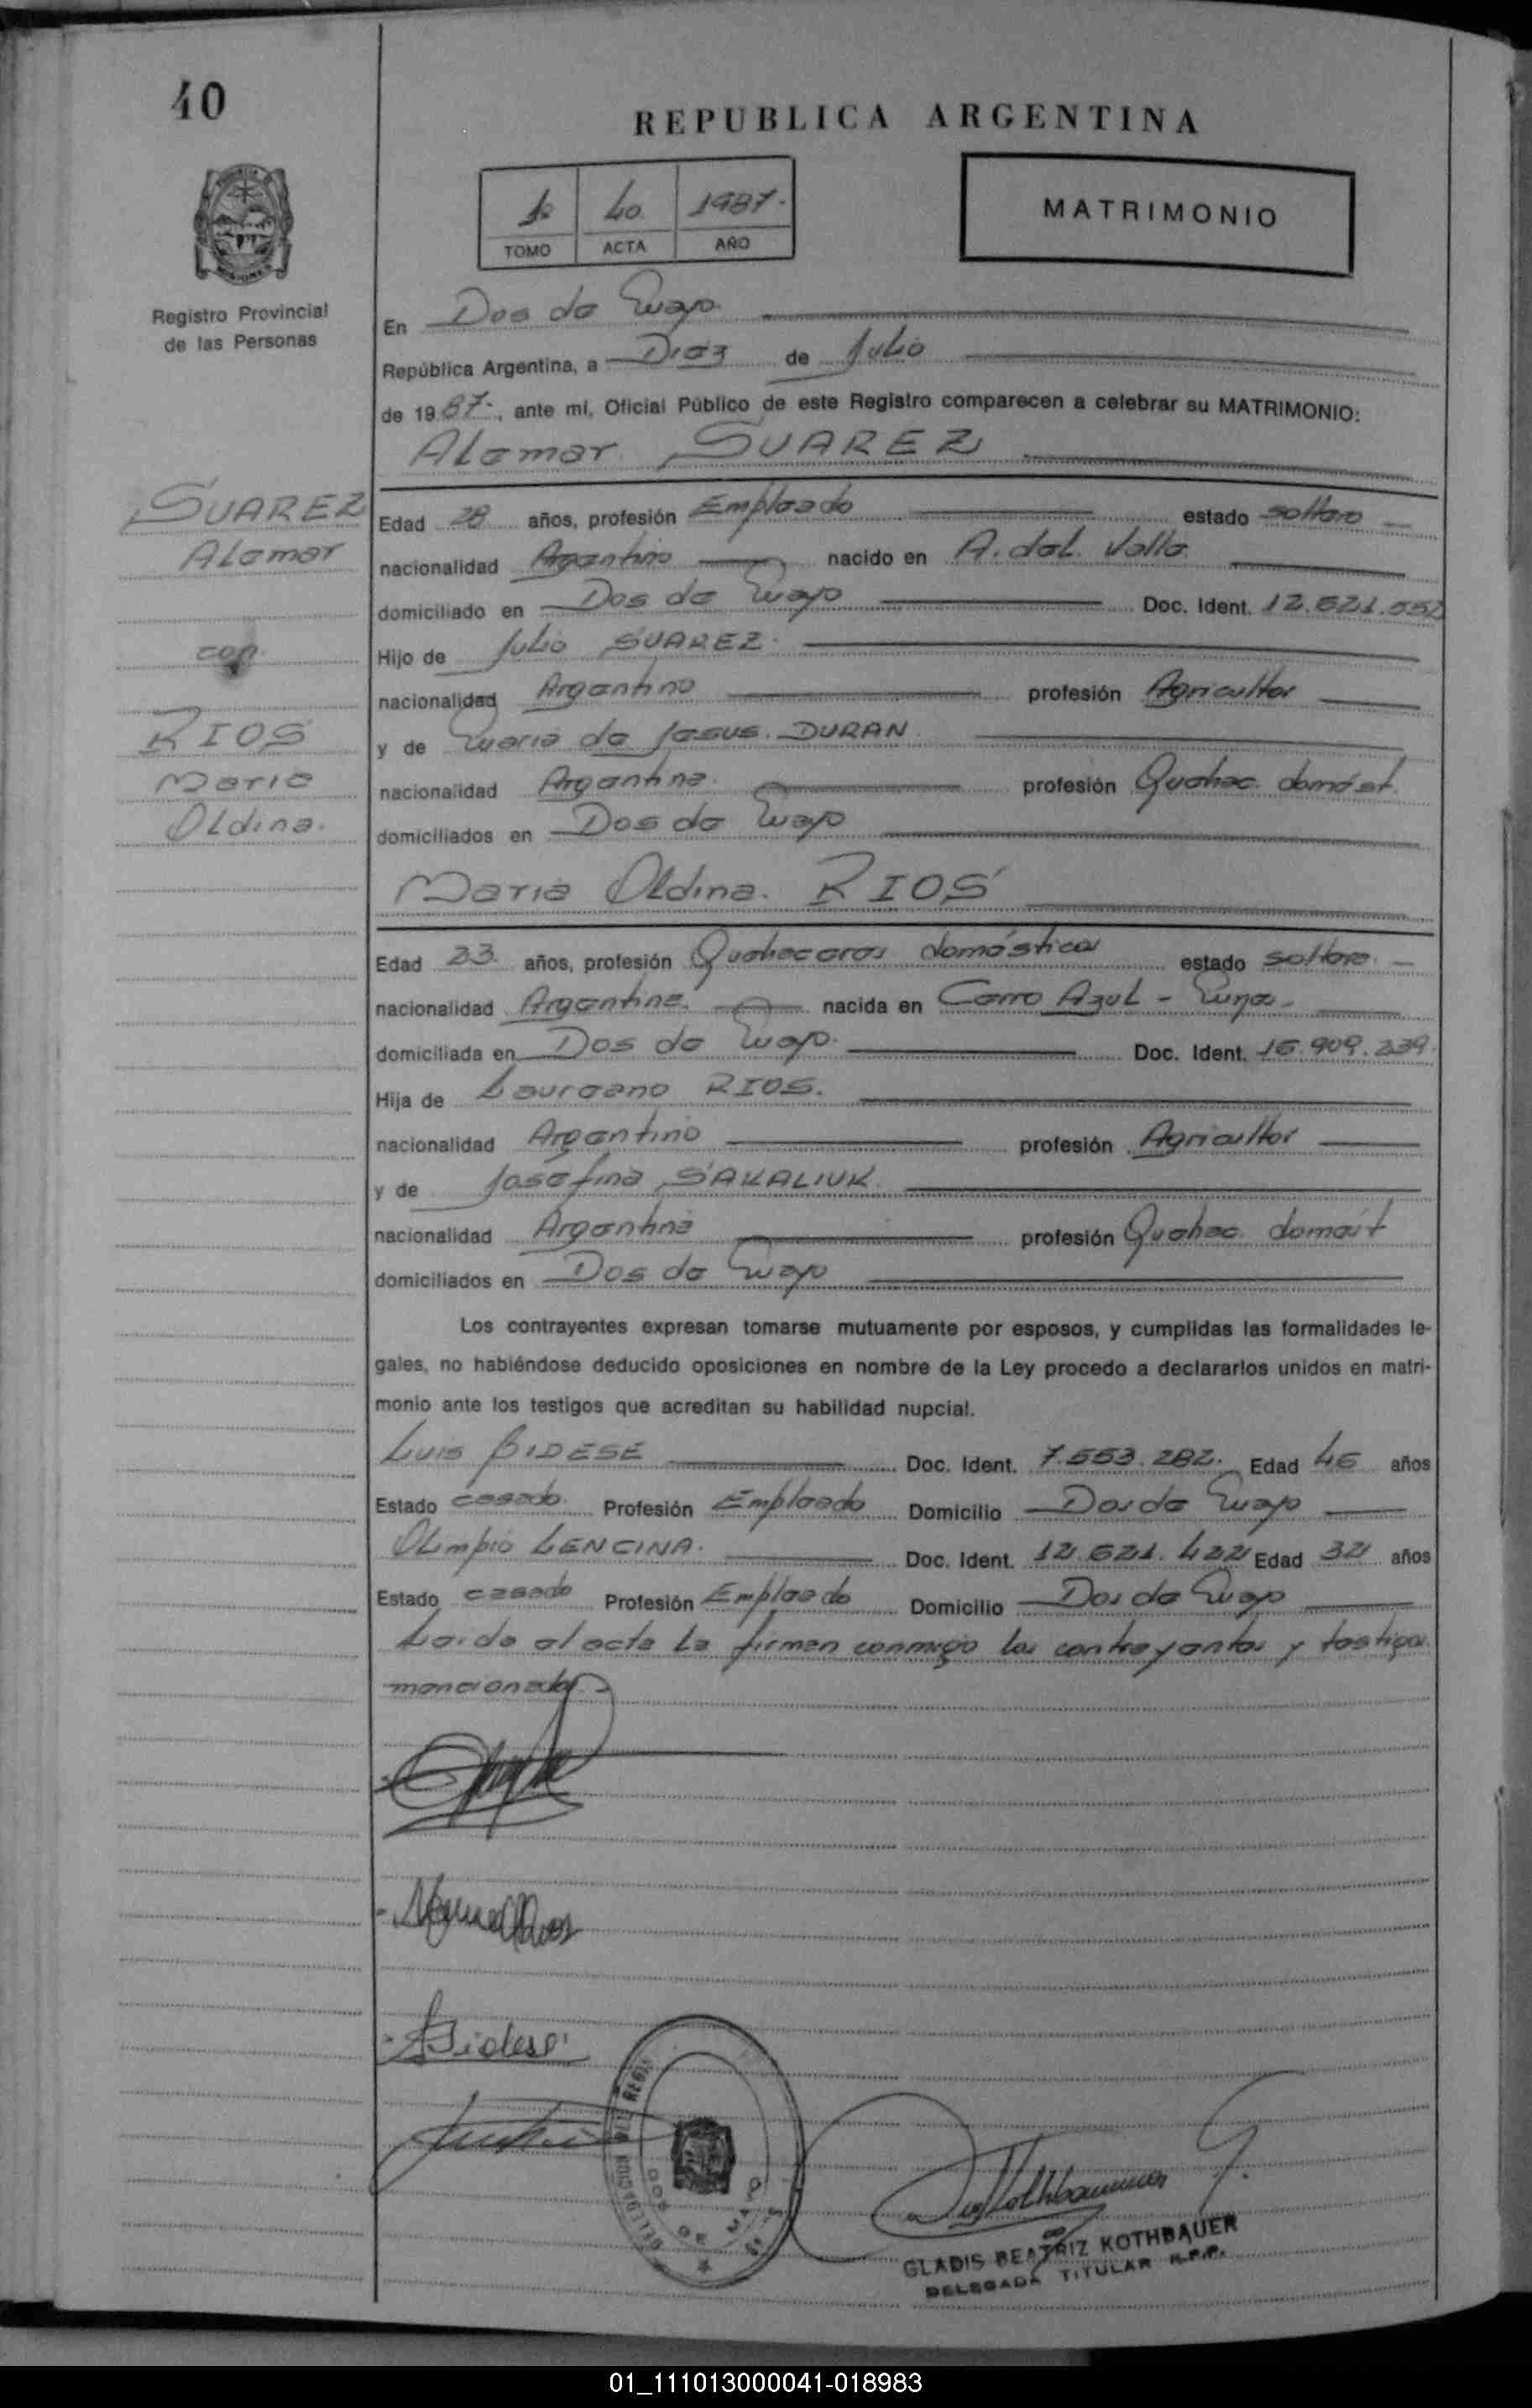 40
REPUBLICA ARGENTINA
1º 40. 1987.
TOMO ACTA AÑO
MATRIMONIO
Registro Provincial
de las Personas
En Dos de Mayo
República Argentina, a Diez de Julio
de 1987., ante mí, Oficial Público de este Registro comparecen a celebrar su MATRIMONIO:
Alemar SUAREZ
SUAREZ
Alemar
con
RIOS
Maria
Oldina.
Edad 28 años, profesión Empleado estado soltero
nacionalidad Argentino nacido en A. del Valle
domiciliado en Dos de Mayo Doc. Ident. 12.621.552
Hijo de Julio SUAREZ.
nacionalidad Argentino profesión Agricultor
y de Maria de Jesus DURAN
nacionalidad Argentina. profesión Quehac. domést.
domiciliados en Dos de Mayo
Maria Oldina. RIOS
Edad 23 años, profesión Quehaceres domésticos estado soltera
nacionalidad Argentina. nacida en Cerro Azul -
domiciliada en Dos de Mayo. Doc. Ident. 16.909.239
Hija de Laureano RIOS.
nacionalidad Argentino profesión Agricultor
y de Josefina SAKALIUK
nacionalidad Argentina profesión Quehac. domést
domiciliados en Dos de Mayo
Los contrayentes expresan tomarse mutuamente por esposos, y cumplidas las formalidades le-
gales, no habiéndose deducido oposiciones en nombre de la Ley procedo a declararlos unidos en matri-
monio ante los testigos que acreditan su habilidad nupcial.
Luis BIDESE Doc. Ident. 7.553.282. Edad 46 años
Estado casado Profesión Empleado Domicilio Dos de Mayo
Olimpio LENCINA. Doc. Ident. 12.621.422 Edad 32 años
Estado casado Profesión Empleado Domicilio Dos de Mayo
Leida el acta la firman conmigo los contrayentes y testigos
mencionados
Bidese
DOS DE MAYO
GLADIS BEATRIZ KOTHBAUER
DELEGADA TITULAR R.P.P.
01_111013000041-018983